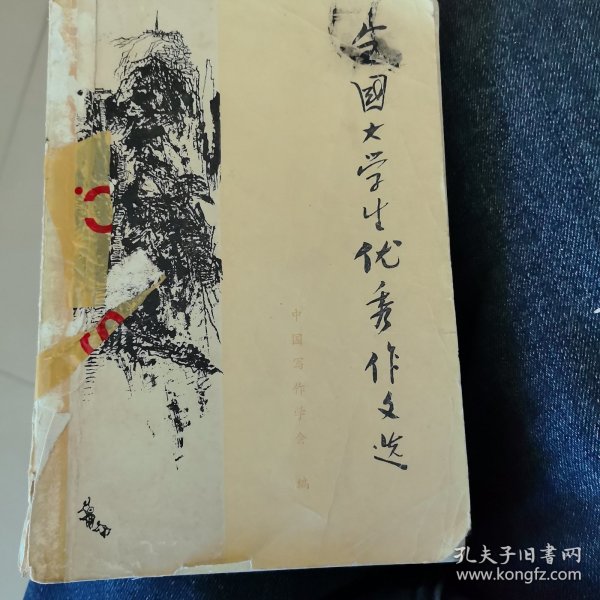 全國大学生优秀作文选
中国写作学会 编
孔夫子旧书网
www.kongfz.com